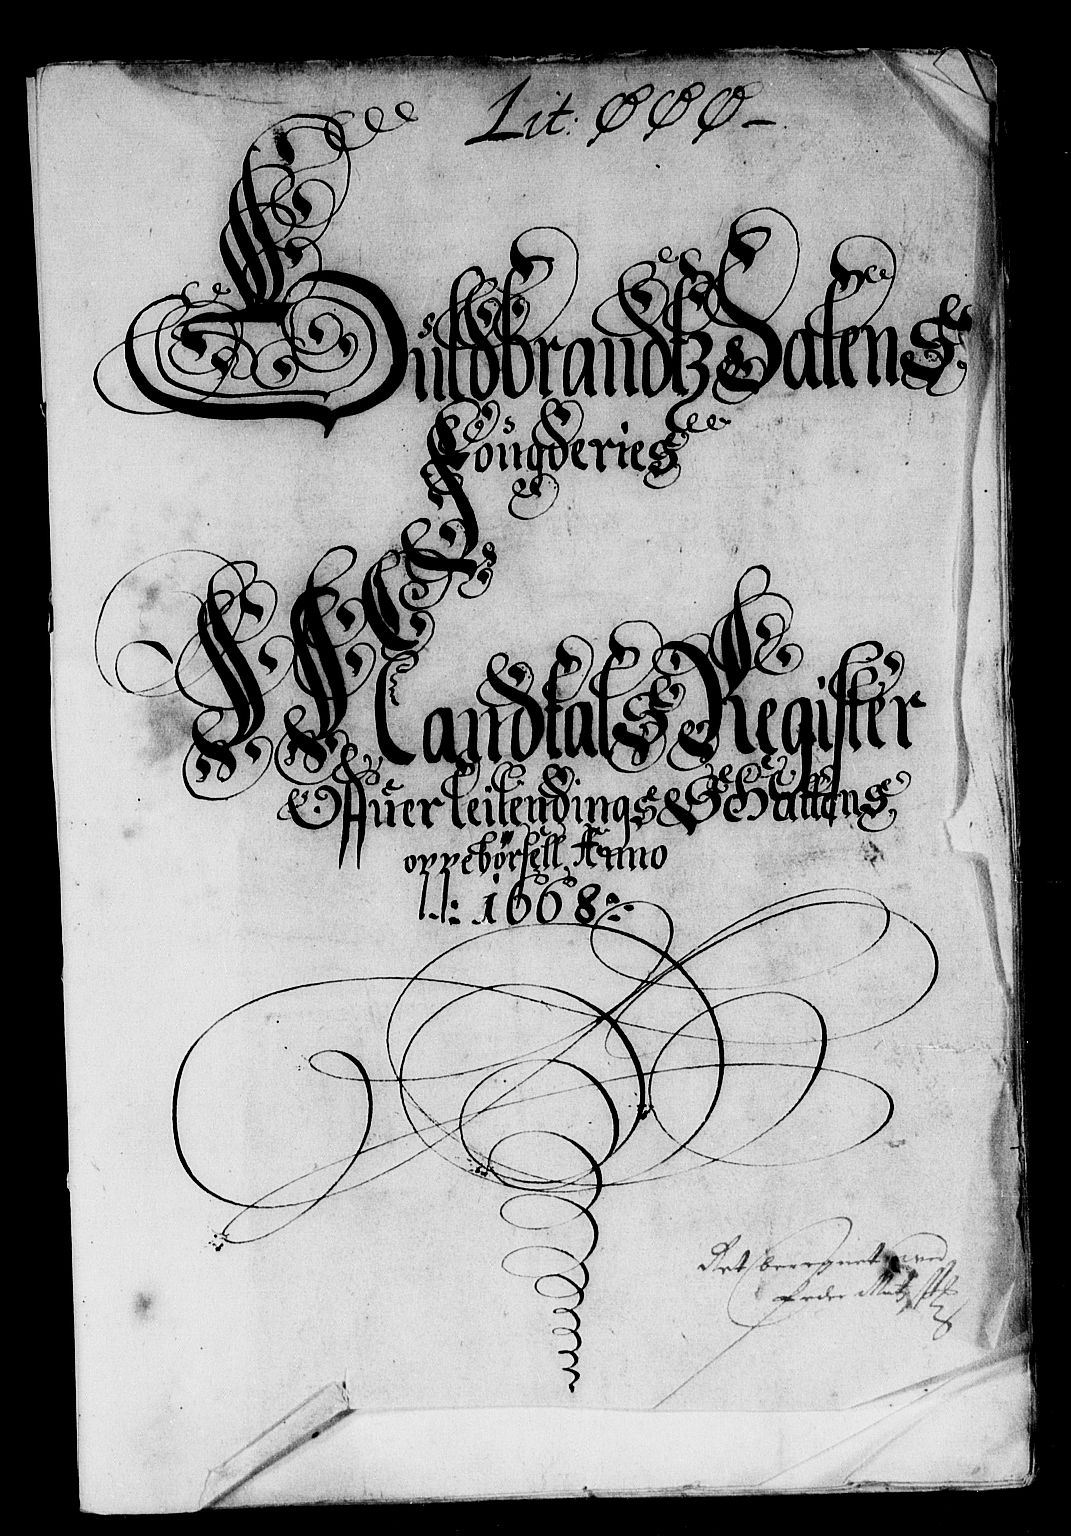 Lit: ØØØ
Guldbrandtz Dalens
Fougderies
Mandtals Register
Offuer leilendings Schattens
oppebørsell Anno
1668